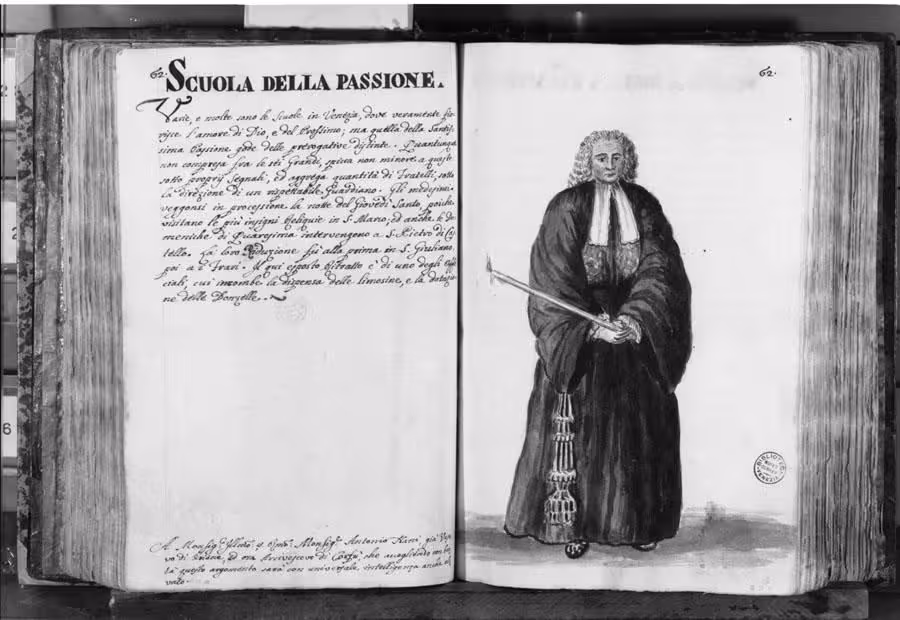 62. SCUOLA DELLA PASSIONE.
Varie, e molte sono le Scuole in Venezia, dove veramente fio-
risce l'amore di Dio, e del Prossimo; ma quella della Santis-
sima Passione gode delle prerogative distinte. Quantunque
non compresa fra le sei Grandi, spicca non minore a queste
sotto proprj Segnali, ed aggrega quantità di Fratelli, sotto
la direzione di un rispettabile Guardiano. Gli medesimi
veggonsi in processione la notte del Giovedì Santo, poichè
visitano le più insigni Reliquie in S. Marco; ed anche le do-
meniche di Quaresima intervengono a S. Pietro di Ca-
stello. La loro Riduzione fù alla prima in S. Giuliano,
poi a i Frari. Il qui esposto Ritratto è di uno degli Uffi-
ciali, cui incombe la dispensa delle limosine, e la dotazio-
ne delle Donzelle.
A Monsig.r Illmo. e Monsig.r Antonio già Ves-
vo di ed ora Arcivescovo di Corfù, che accogliendo con
tà questo argomento sarà con universale intelligenza
62.
BIBLIOTECA
MUSEO
CORRER
VENEZIA